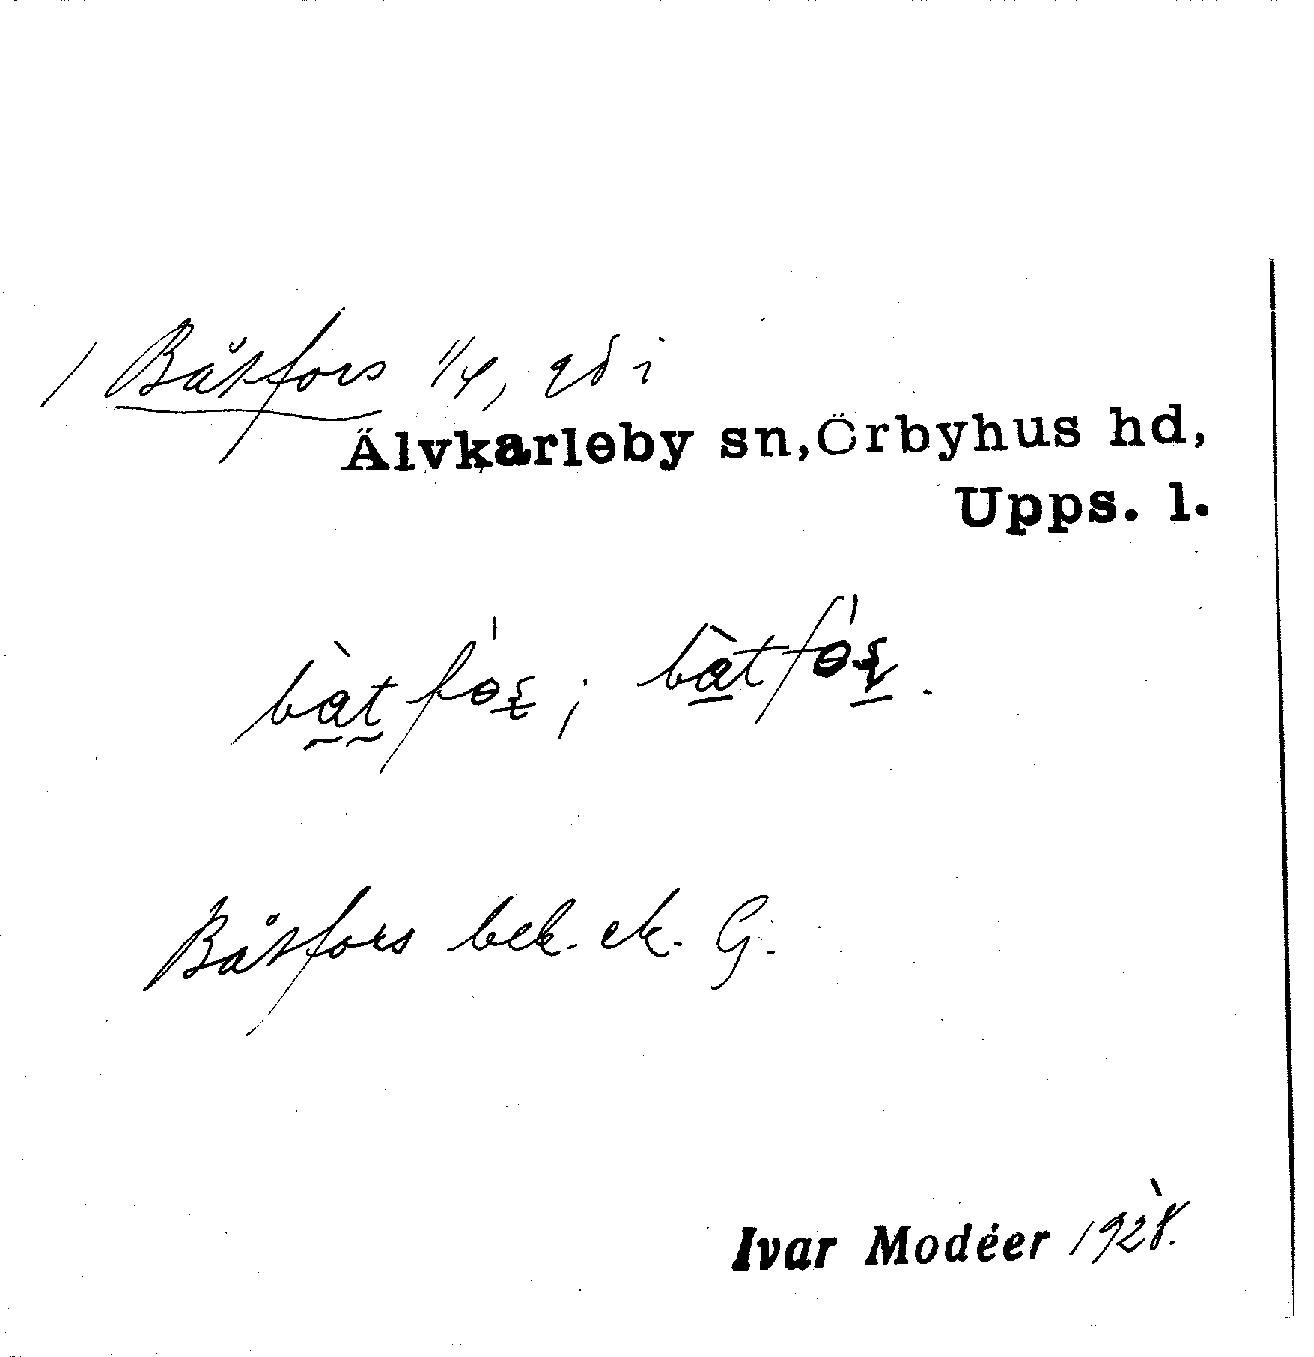 1 Båtfors 1/4, gd i
Älvkarleby sn, Örbyhus hd,
Upps. l.
Båtfors bek. ek. G.
Ivar Modéer 1928.